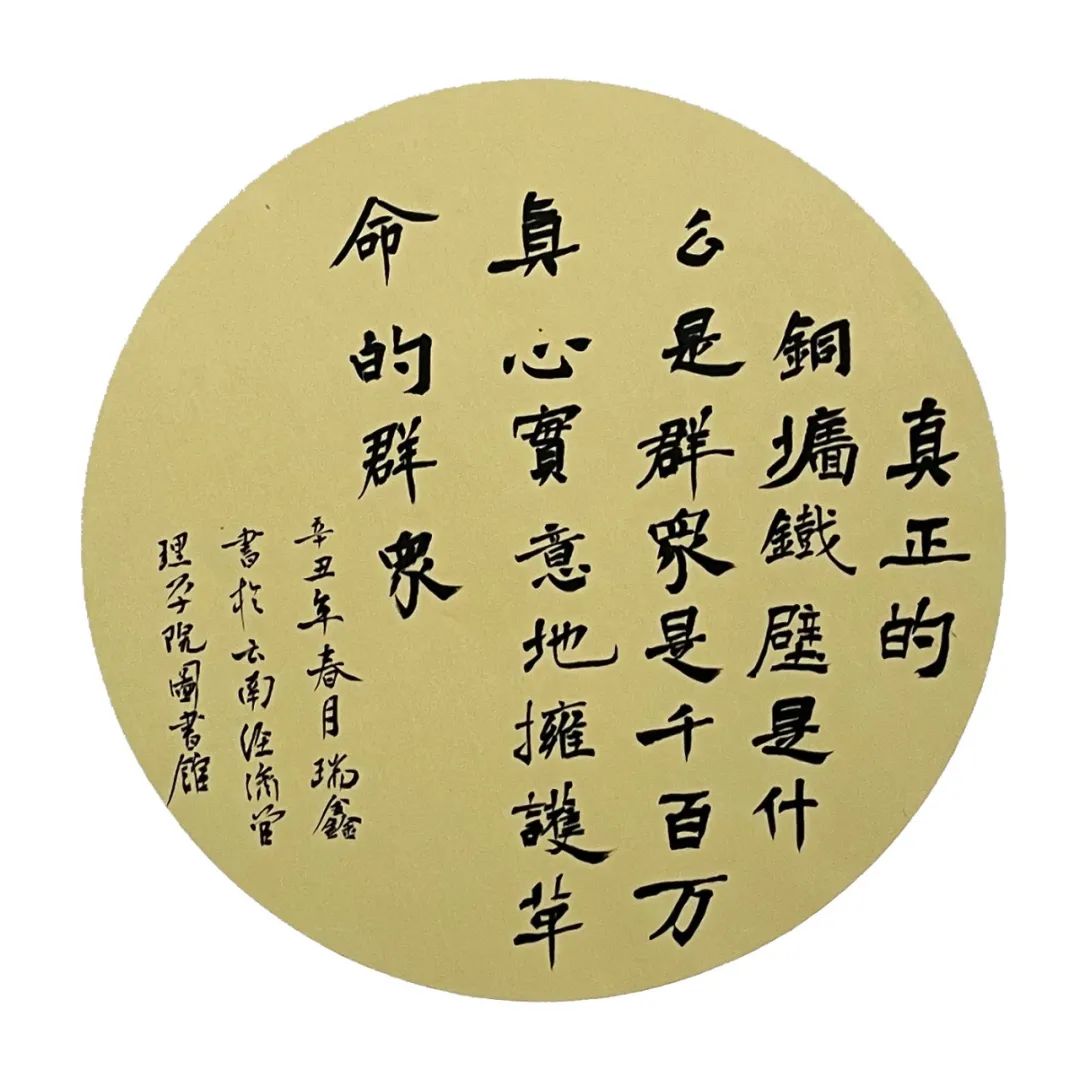 真正的
銅墻鐵壁是什
么是群眾是千百万
真心實意地擁護革
命的群眾
辛丑年春月瑞鑫
書於云南经濟管
理学院圖書館